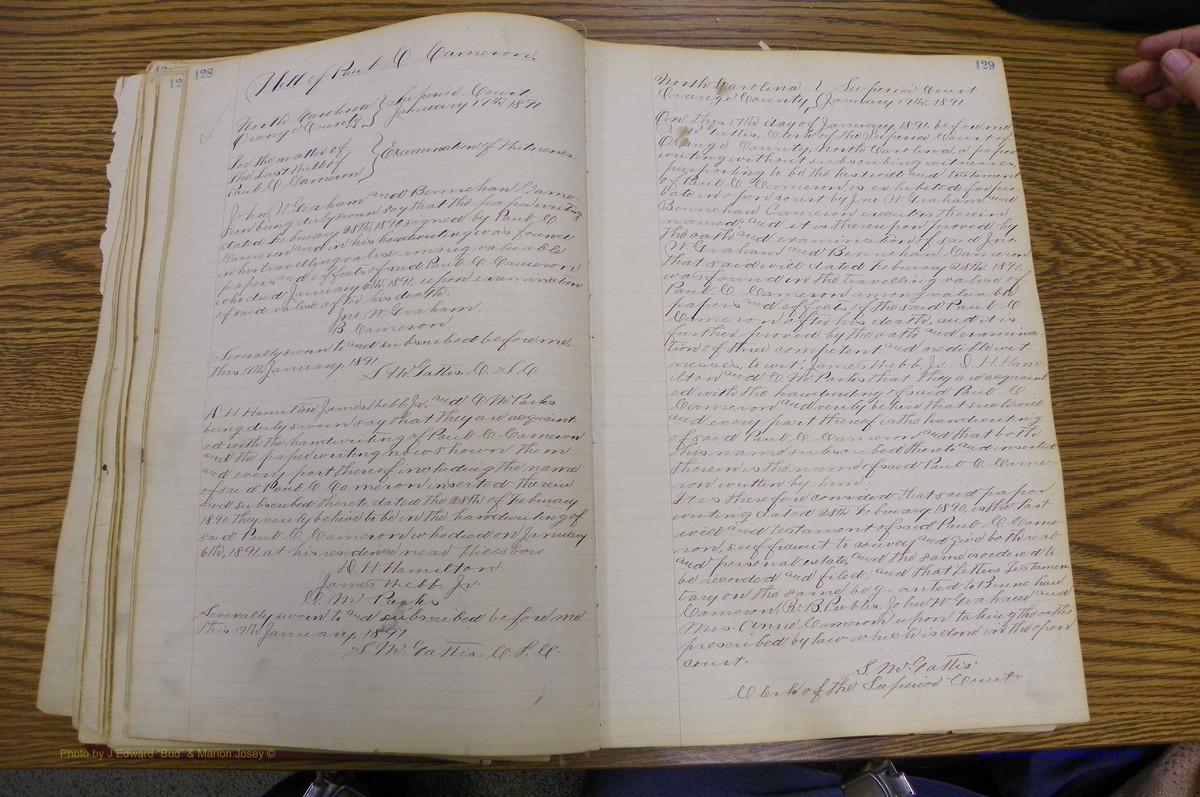 128
Will of Paul C Cameron.
North Carolina } Superior Court
Orange County } January 17th 1891
In the matter of
the Last Will of } Examination of Witnesses
Paul C Cameron
John W Graham and Bennehan Came-
ron being duly sworn say that the paper writing
dated February 28th, 1890 signed by Paul C.
Cameron and in his handwriting was found
in his travelling valise among valuable
papers and effects of said Paul C. Cameron
who died January 6th, 1891, upon examination
of said valise after his death.
Jno W Graham
B. Cameron
Severally sworn to and subscribed before me
this 17th January, 1891
S. M. Gattis C. S. C.
D. H. Hamilton, James Webb Jr. and C. M. Parks
being duly sworn say that they are acquaint
ed with the handwriting of Paul C Cameron
and the paper writing now shown them
and every part thereof including the name
of said Paul C. Cameron inserted therein
and subscribed thereto, dated the 28th of February
1890, they verily believe to be in the handwriting of
said Paul C. Cameron who died on January
6th, 1891, at his residence near Hillsboro.
D H Hamilton
James Webb Jr.
C. M. Parks
Severally sworn to and subscribed before me
this 17th January, 1891
S M Gattis. C. S. C.
129
North Carolina } Superior Court
Orange County } January 17th, 1891
On this 17th day of January 1891, before me
Gattis, Clerk of the Superior Court of
Orange County, North Carolina, a paper
writing without subscribing witnesses,
purporting to be the last will and testament
of Paul C. Cameron is exhibited for pro-
bate in open court by Jno W Graham and
Bennehan Cameron executors therein
named; and it is thereupon proved by
the oath and examination of said Jno.
W Graham and Bennehan Cameron
that said will dated February 28th, 1890,
was found in the travelling valise of
Paul C. Cameron among valuable
papers and effects of the said Paul C.
Cameron after his death, and it is
further proved by the oath and examina
tion of three competent and credible wit
nesses, to wit; James Webb Jr. D. H. Ham
ilton and C. M. Parks that they are acquaint
ed with the handwriting of said Paul C.
Cameron and verily believe that such will
and every part thereof is the handwriting
of said Paul C. Cameron and that both
his name subscribed thereto and inserted
therein is the name of said Paul C. Came-
ron written by him.
It is therefore considered that said paper
writing dated 28th February 1890, is the last
will and testament of said Paul C. Came-
ron, sufficient to convey and give both real
and personal estate, and the same is ordered to
be recorded and filed; and that Letters Testamen
tary on the same be granted to Bennehan
Cameron, R. B. Peebles, John W Graham and
Mrs. Anne Cameron upon taking the oaths
prescribed by law which is done in the open
court.
S. M. Gattis.
Clerk of the Superior Court
Photo by J Edward "Bud" & Marion Josey ©